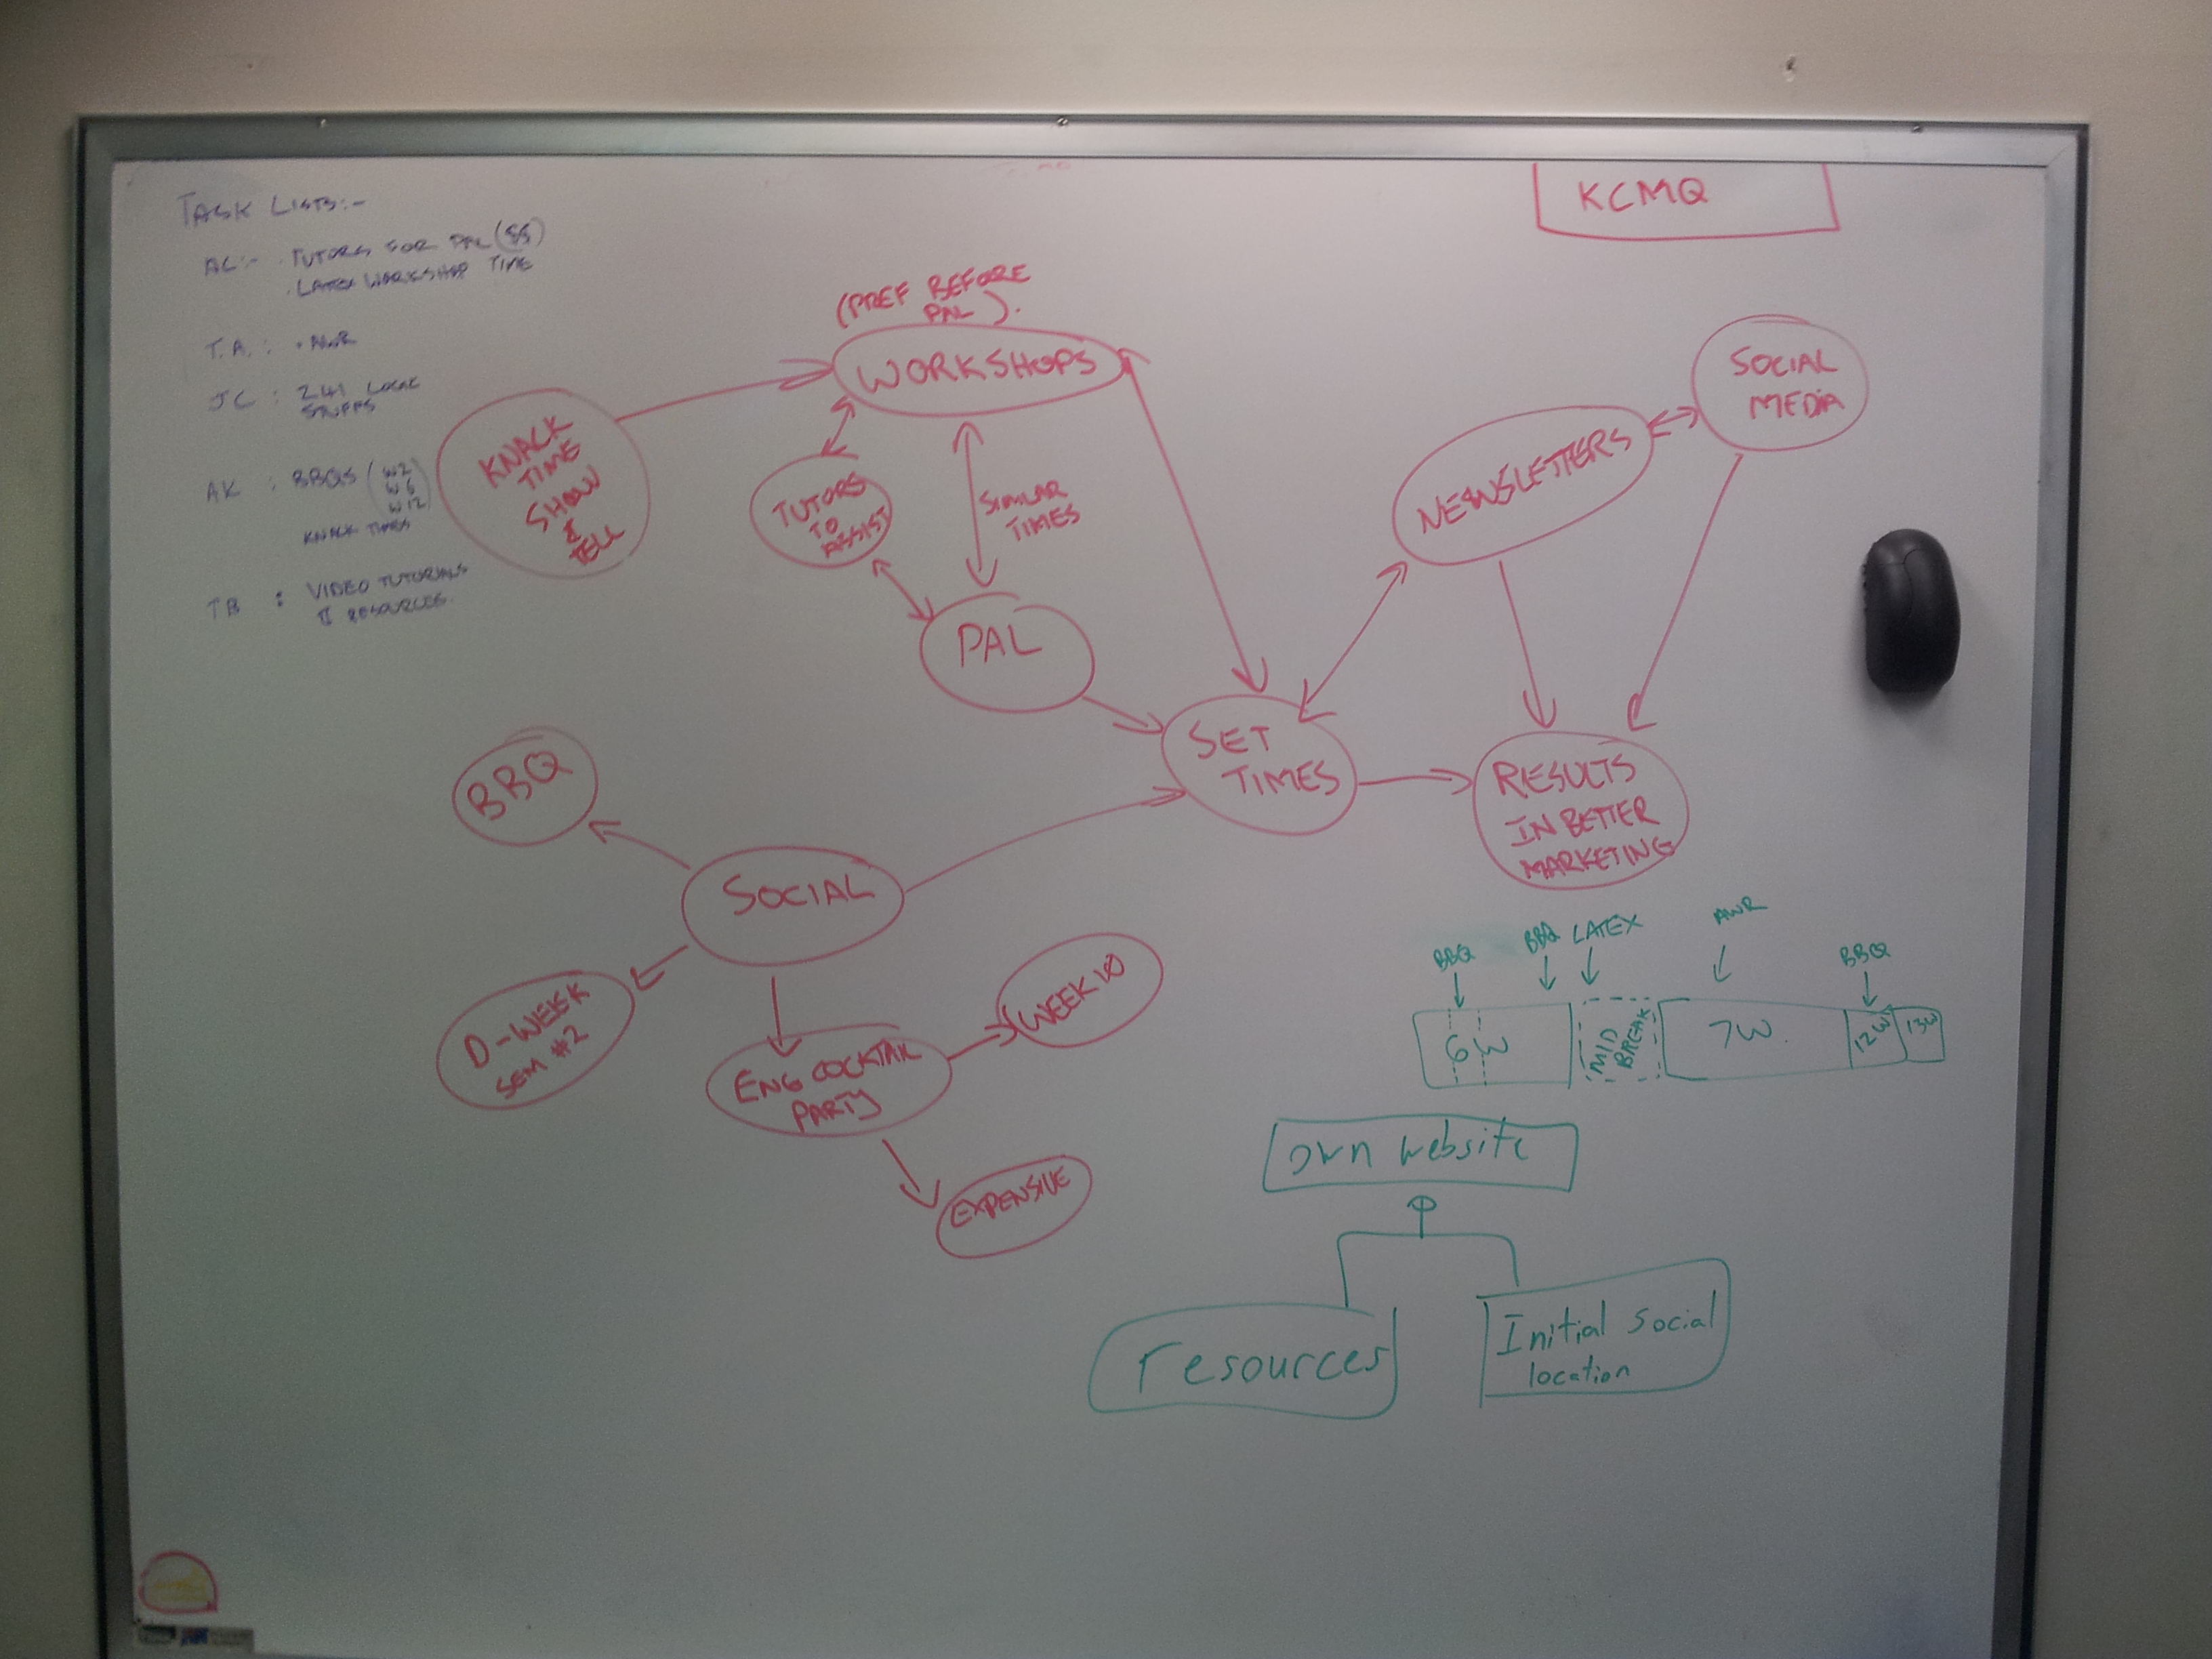 TASK LISTS:-
AC:- . TUTORS FOR PAL ($$)
. LATEX WORKSHOP TIME
T.A. : • AWR
JC : 241 LOCAL
STUFFS
AK : BBQS (W2
W6
W12)
KNACK TIMES
TB : VIDEO TUTORIALS
& RESOURCES.
KCMQ
(PREF BEFORE
PAL).
WORKSHOPS
KNACK
TIME
SHOW
&
TELL
TUTORS
TO
ASSIST
SIMILAR
TIMES
PAL
SOCIAL
MEDIA
NEWSLETTERS
SET
TIMES
RESULTS
IN BETTER
MARKETING
BBQ
SOCIAL
D-WEEK
SEM #2
ENG COCKTAIL
PARTY
WEEK 10
EXPENSIVE
BBQ BBQ LATEX AWR BBQ
6W MID
BREAK 7W. 12W 13W
own website
resources
Initial social
location